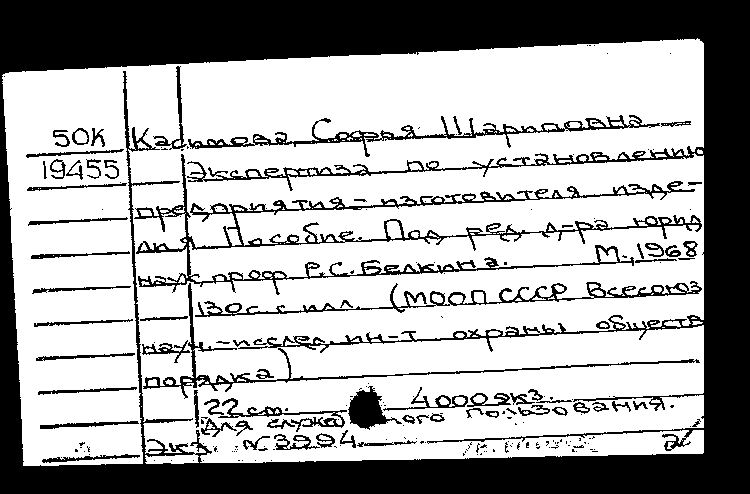 50К Касимова, Софья Шариповна
19455 Экспертиза по установлению
предприятия-изготовителя изде-
лия Пособие. Под ред. д-ра юрид
наук, проф Р.С. Белкина. М., 1968
130с. с илл. (МООП СССР Всесоюз
науч.-исслед. ин-т охраны обществ
порядка)
22 см. 4000 экз.
Для служебного пользования.
Экз. №3994.